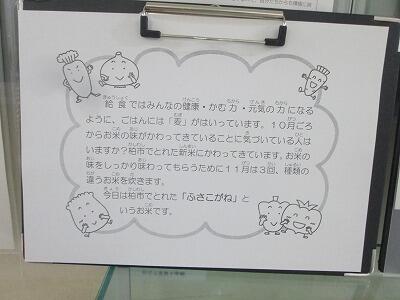 給食ではみんなの健康・かむ力・元気の力になる
ように、ごはんには「麦」がはいっています。１０月ごろ
からお米の味がかわってきていることに気づいている人は
いますか？柏市でとれた新米にかわってきています。お米の
味をしっかり味わってもらうために１１月は３回、種類の
違うお米を炊きます。
今日は柏市でとれた「ふさこがね」と
いうお米です。